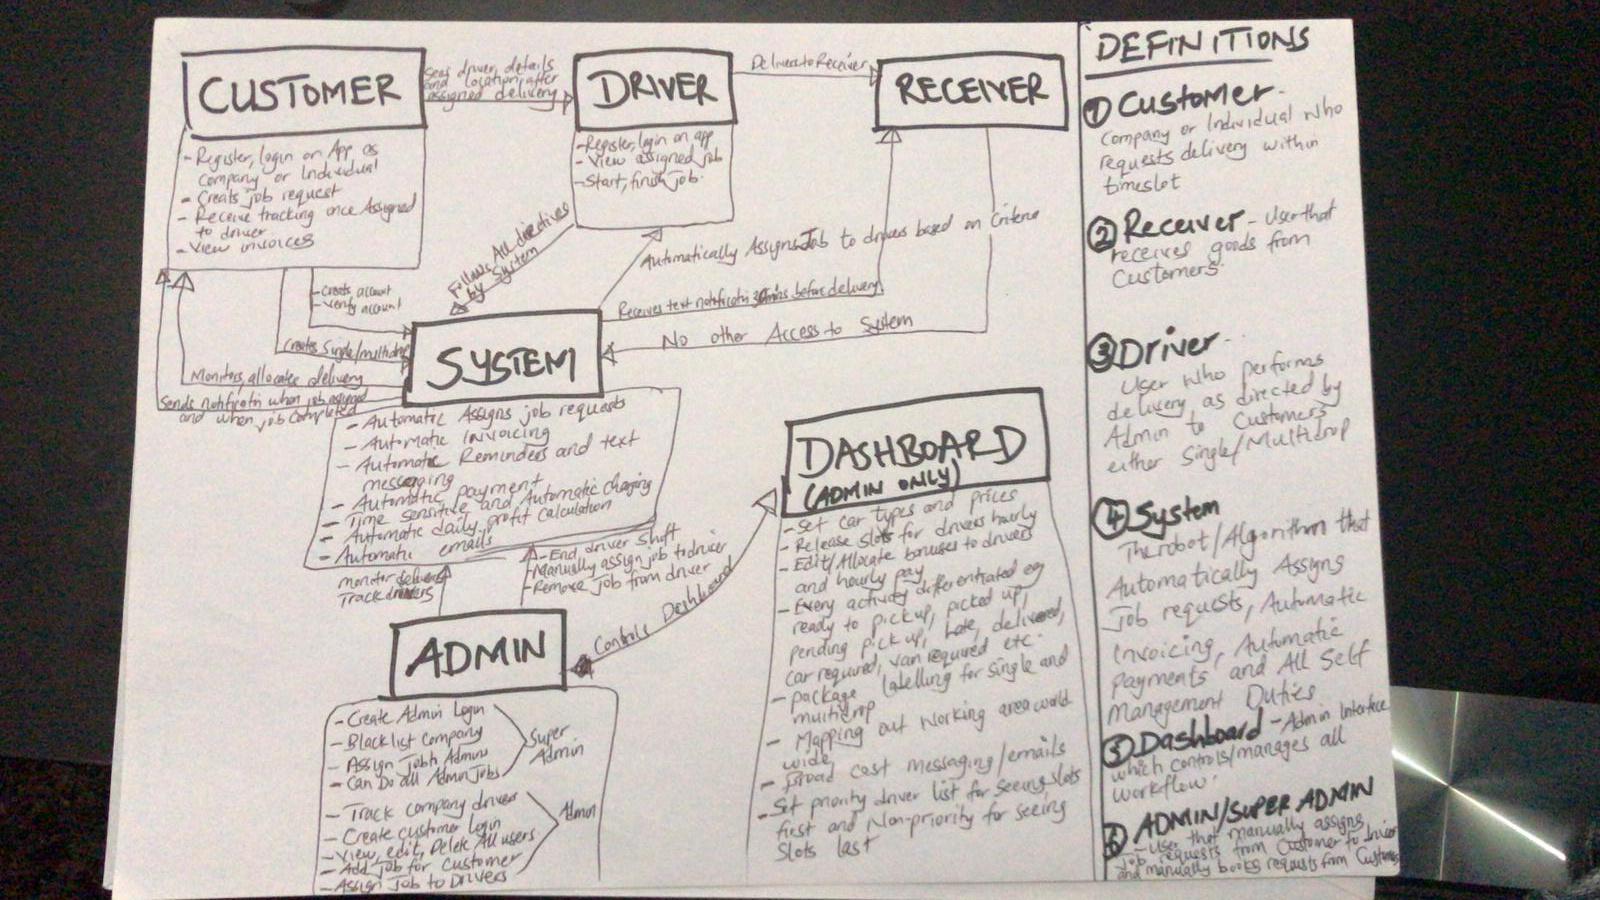 CUSTOMER
- Register, login on App as
company or Individual
- Creats job request
- Receive tracking once Assigned
to driver
- View invoices
Sees driver details
and location after
assigned delivery
DRIVER
- Register, login on app
- View assigned job
- Start, finish job.
Delivers to Receiver
RECEIVER
Follows All directives
by System
Automatically Assigns Job to drivers based on Criteria
Receives text notificatn 30mins before delivery
No other Access to System
- Creats account
- Verify account
Creats Single/multidrop
Monitors, allocates delivery
Sends notificatn when job assigned
and when job completed
SYSTEM
- Automatic Assigns job requests
- Automatic Invoicing
- Automatic Reminders and text
messaging
- Automatic payment
- Time sensitive and Automatic charging
- Automatic daily profit calculation
- Automatic emails
monitor delivery
Track drivers
- End driver shift
- Manually assign job to driver
- Remove job from driver
ADMIN
- Create Admin Login
- Blacklist company
- Assign Jobs Admins
- Can Do all Admin Jobs
Super
Admin
- Track company driver
- Create customer login
- View, edit, Delete All users
- Add job for customer
- Assign Job to Drivers
Admin
Controls Dashboard
DASHBOARD
(ADMIN ONLY)
- Set car types and prices
- Release slots for drivers hourly
- Edit/Allocate bonuses to drivers
and hourly pay
- Every activity differentiated eg
ready to pick up, picked up,
pending pick up, late, delivered,
car required, van required etc.
- package labelling for single and
multidrop
- Mapping out working area world
wide
- Broad cast messaging/emails
- Set priority driver list for seeing slots
first and Non-priority for seeing
Slots last
DEFINITIONS
1 Customer -
Company or Individual who
requests delivery within
timeslot
2 Receiver - User that
receives goods from
Customers.
3 Driver -
User who performs
delivery as directed by
Admin to Customers
either Single/Multidrop
4 System
The robot/Algorithm that
Automatically Assigns
Job requests, Automatic
Invoicing, Automatic
payments and All Self
Management Duties
5 Dashboard - Admin Interface
which controls/manages all
workflow.
6 ADMIN/SUPER ADMIN
- User that manually assigns
job requests from Customer to driver
and manually books requests from Customers